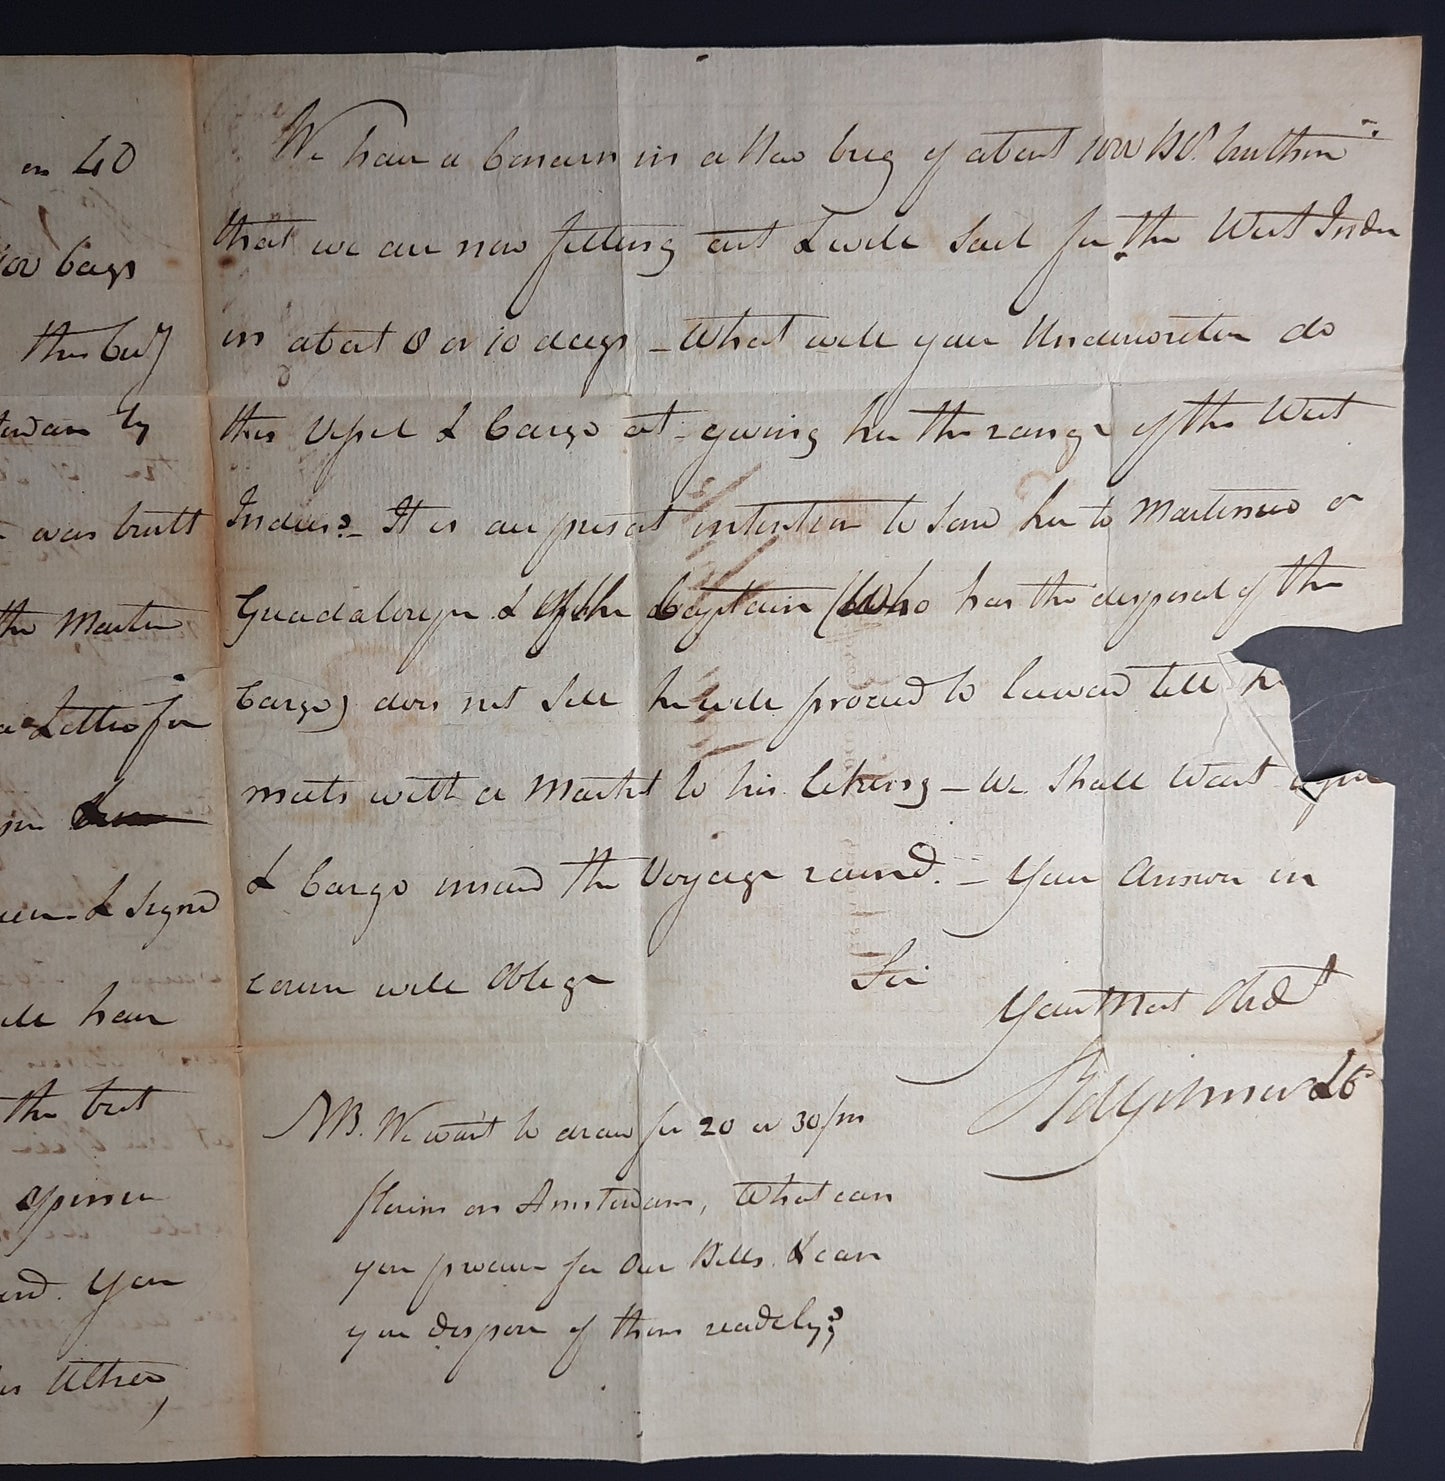 on 40
bags
this
by
was built
the Master
Letter for
& Signed
have
the best
opinion
You
other,
We have a Concern in a New brig of about 1000 Bbl. burthen
that we are now fitting out & will Sail for the West Indies
in about 8 or 10 days – What will your Underwriters do
this Vessel & Cargo at – giving her the range of the West
Indies? – It is our present intention to Send her to Martinico or
Guadaloupe & if the Captain (Who has the disposal of the
Cargo) does not Sell he will proceed to leeward till he
meets with a Market to his liking – We Shall Want
& Cargo insured the Voyage round. – Your Answer in
course will Oblige Sir
Your Most Obedt
& Co
NB. We want to draw for 20 or 30/m
florins on Amsterdam, What can
you procure for Our Bills & can
you dispose of them readily?